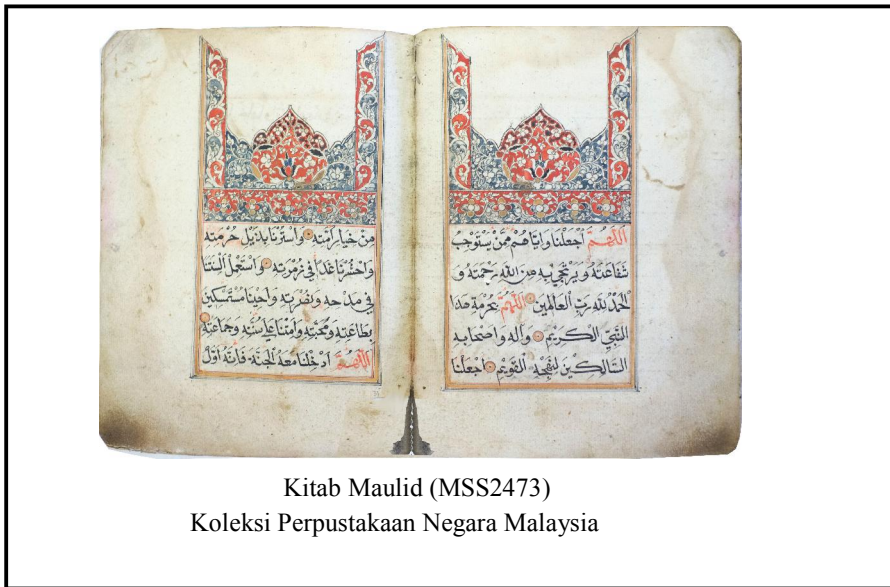 اَللّٰهُمَّ اجْعَلْنَا وَاِيَّاهُمْ مِمَّنْ يَسْتَوْجِبُ
شَفَاعَتَهُ وَيَرْتَجِيْ بِهِ مِنَ اللهِ رَحْمَتَهُ وَ
الْحَمْدُ لِلّٰهِ رَبِّ الْعَالَمِيْنَ اَللّٰهُمَّ بِحُرْمَةِ هٰذَا
النَّبِيِّ الْكَرِيْمِ وَآلِهِ وَاَصْحَابِهِ
السَّالِكِيْنَ لِنَهْجِهِ الْقَوِيْمِ اجْعَلْنَا
مِنْ خِيَارِ اُمَّتِهِ وَاسْتُرْنَا بِذَيْلِ حُرْمَتِهِ
وَاحْشُرْنَا غَدًا فِيْ زُمْرَتِهِ وَاسْتَعْمِلْ اَلْسِنَتَنَا
فِيْ مَدْحِهِ وَنُصْرَتِهِ وَاَحْيِنَا مُسْتَمْسِكِيْنَ
بِطَاعَتِهِ وَمَحَبَّتِهِ وَاَمِتْنَا عَلٰى سُنَّتِهِ وَجَمَاعَتِهِ
اَللّٰهُمَّ اَدْخِلْنَا مَعَهُ الْجَنَّةَ فَاِنَّهُ اَوَّلُ
Kitab Maulid (MSS2473)
Koleksi Perpustakaan Negara Malaysia